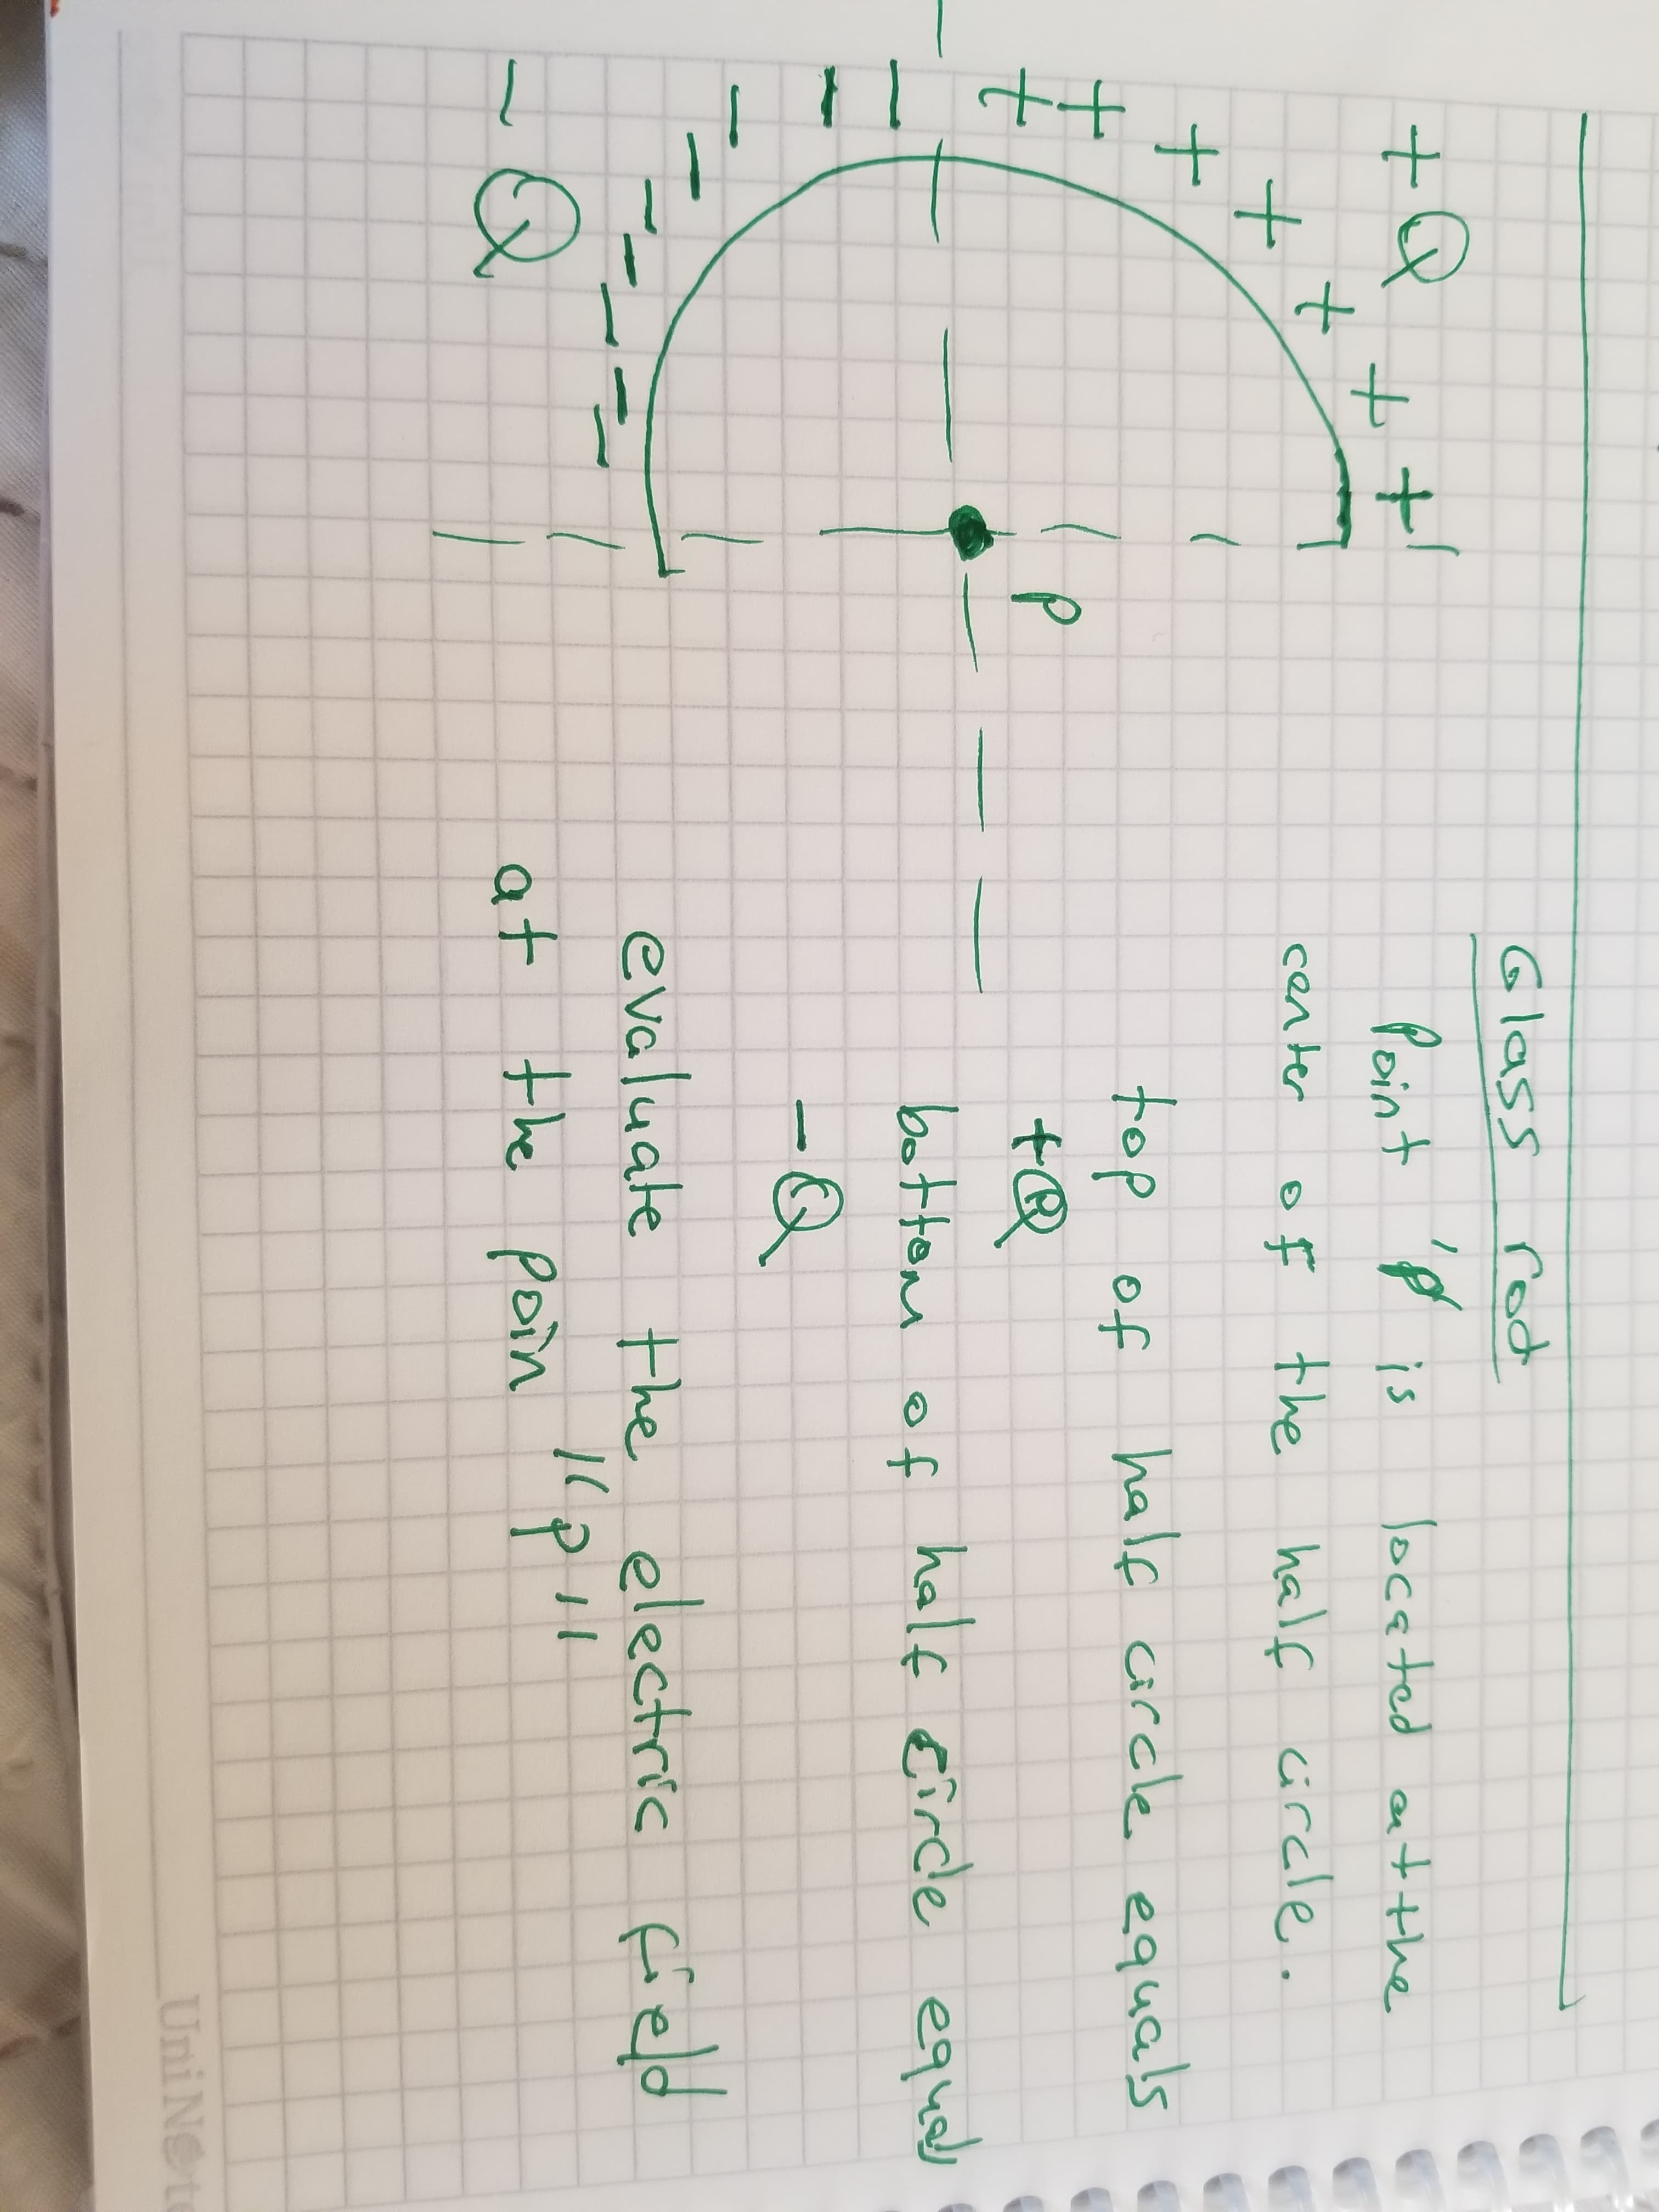 Glass rod
Point 'p is located at the
center of the half circle.
top of half circle equals
+Q
bottom of half circle equal
- Q
evaluate the electric field
at the poin "p"
+ Q
+ + + + + + +
P
- - - - - - - - -
- Q
UniNote